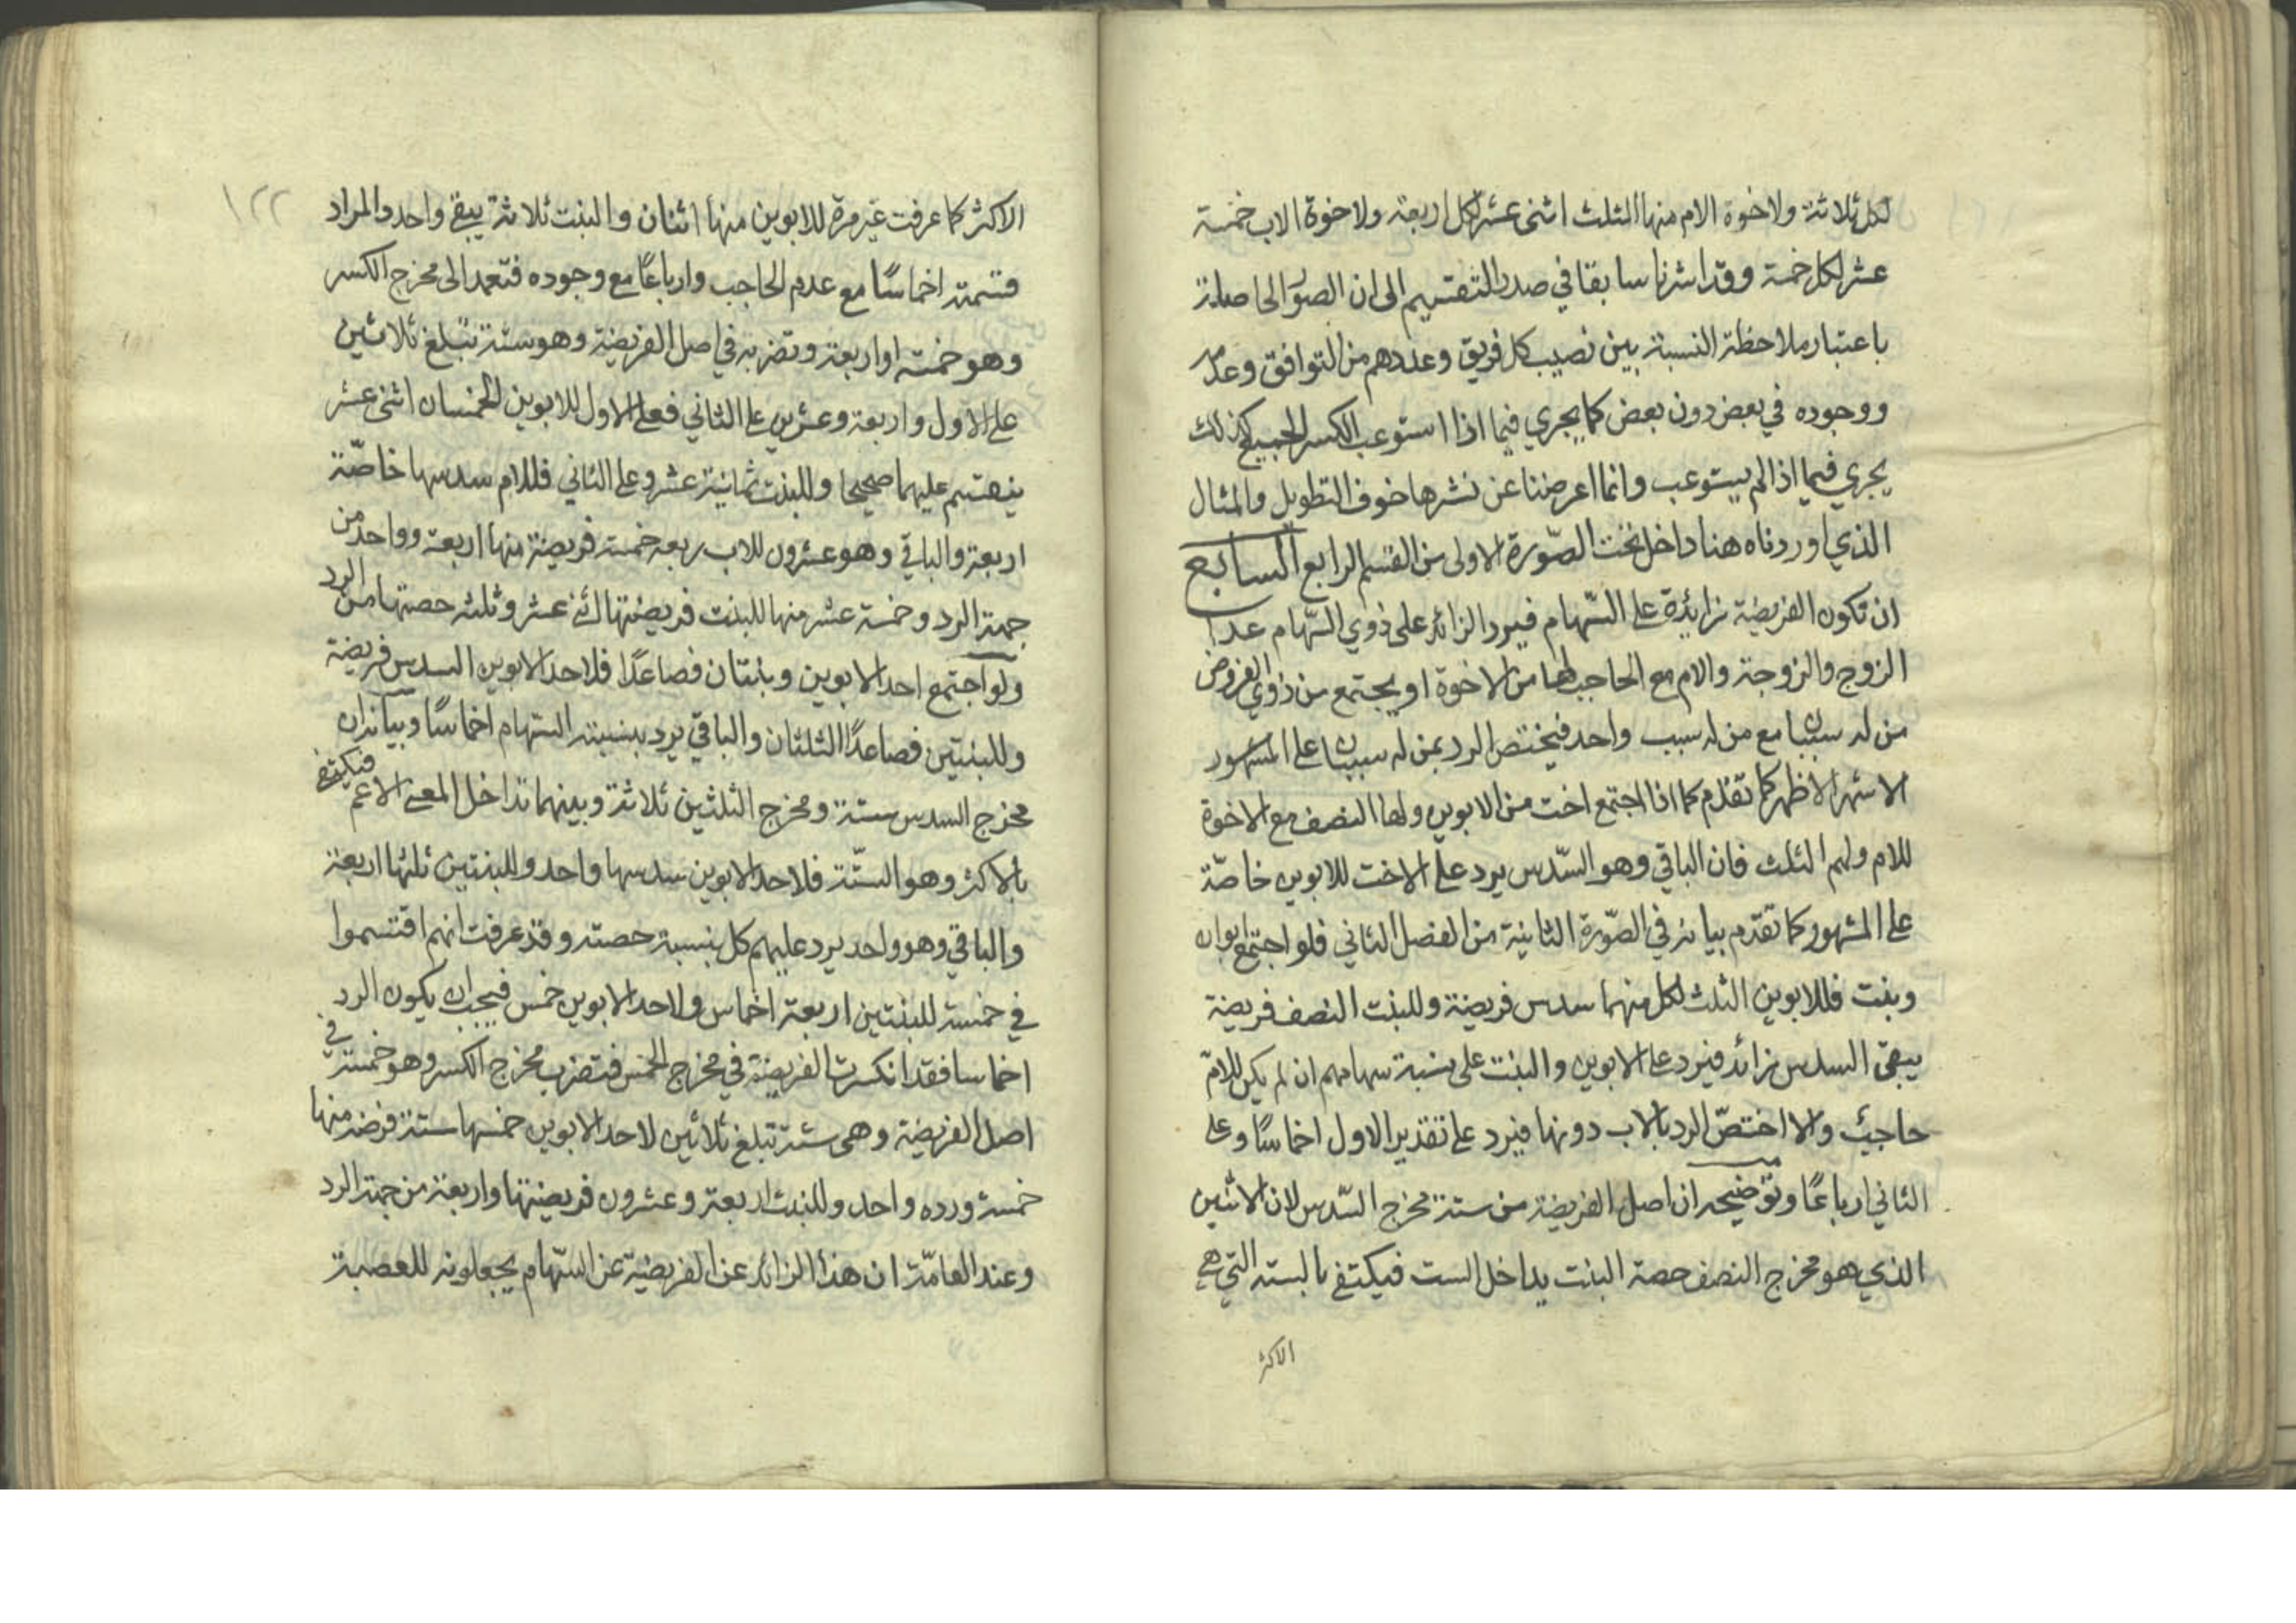 لكل ثلاثة ولاخوة الام منها الثلث اثنى عشر لكل اربعة ولاخوة الاب خمسة
عشر لكل خمسة وقد اشرنا سابقا في صدر التقسيم الى ان الصور الحاصلة
باعتبار ملاحظة النسبة بين نصيب كل فريق وعددهم من التوافق وعدمه
ووجوده في بعض دون بعض كما يجري فيما اذا استوعب الكسر الجميع كذلك
يجري فيما اذا لم يستوعب وانما اعرضنا عن نشرها خوف التطويل والمثال
الذي اوردناه هنا داخل تحت الصّورة الاولى من القسم الرابع السابع
ان تكون الفريضة زائدة على السّهام فيرد الزائد على ذوي السّهام عدا
الزوج والزوجة والام مع الحاجب لها من الاخوة او يجتمع من ذوي الفروض
من له سببان مع من له سبب واحد فيختص الرد بمن له سببان على المشهور
الاشهر الاظهر كما تقدم كما اذا اجتمع اخت من الابوين ولها النصف مع الاخوة
للام ولهم الثلث فان الباقي وهو السّدس يرد على الاخت للابوين خاصّة
على المشهور كما تقدّم بيانه في الصّورة الثانية من الفصل الثاني فلو اجتمع ابوان
وبنت فللابوين الثلث لكل منهما سدس فريضة وللبنت النصف فريضة
يبقى السدس زائد فيرد على الابوين والبنت على نسبة سهامهم ان لم يكن للامّ
حاجب والا اختصّ الرد بالاب دونها فيرد على تقدير الاول اخماسًا وعلى
الثاني ارباعًا وتوضيحه ان اصل الفريضة من ستة مخرج السّدس لان الاثنين
الذي هو مخرج النصف حصة البنت يداخل الست فيكتفى بالستة التي هي
الاكثر
١٢٢
الاكثر كما عرفت غير مرة للابوين منها اثنان والبنت ثلاثة يبقى واحد والمراد
قسمته اخماسًا مع عدم الحاجب وارباعًا مع وجوده فتعمد الى مخرج الكسر
وهو خمسة او اربعة وتضربه في اصل الفريضة وهو ستة تبلغ ثلاثين
على الاول واربعة وعشرين على الثاني فعلى الاول للابوين الخمسان اثنى عشر
ينقسم عليهما صحيحا وللبنت ثمانية عشر وعلى الثاني فللام سدسها خاصّة
اربعة والباقي وهو عشرون للاب ربعه خمسة فريضة منها اربعة وواحد من
جهة الرد وخمسة عشر منها للبنت فريضتها اثنى عشر وثلثه حصتها من الرد
ولو اجتمع احد الابوين وبنتان فصاعدًا فلاحد الابوين السدس فريضة
وللبنتين فصاعدًا الثلثان والباقي يرد بنسبة السهام اخماسًا وبيانه ان
مخرج السدس ستة ومخرج الثلثين ثلاثة وبينهما تداخل المعنى الاعم فيكتفى
بالاكثر وهو الستّة فلاحد الابوين سدسها واحد وللبنتين ثلثها اربعة
والباقي وهو واحد يرد عليهم كل بنسبة حصته وقد عرفت انهم اقتسموا
في خمسة للبنتين اربعة اخماس ولاحد الابوين خمس فيجب ان يكون الرد
اخماسا فقد انكسرت الفريضة في مخرج الخمس فتضرب مخرج الكسر وهو خمسة في
اصل الفريضة وهى ستة تبلغ ثلاثين لاحد الابوين خمسها ستة فرضه منها
خمسة ورده واحد وللبنت اربعة وعشرون فريضتها واربعة من جهة الرد
وعند العامّة ان هذا الزائد عن الفريضة عن السّهام يجعلونه للعصبة